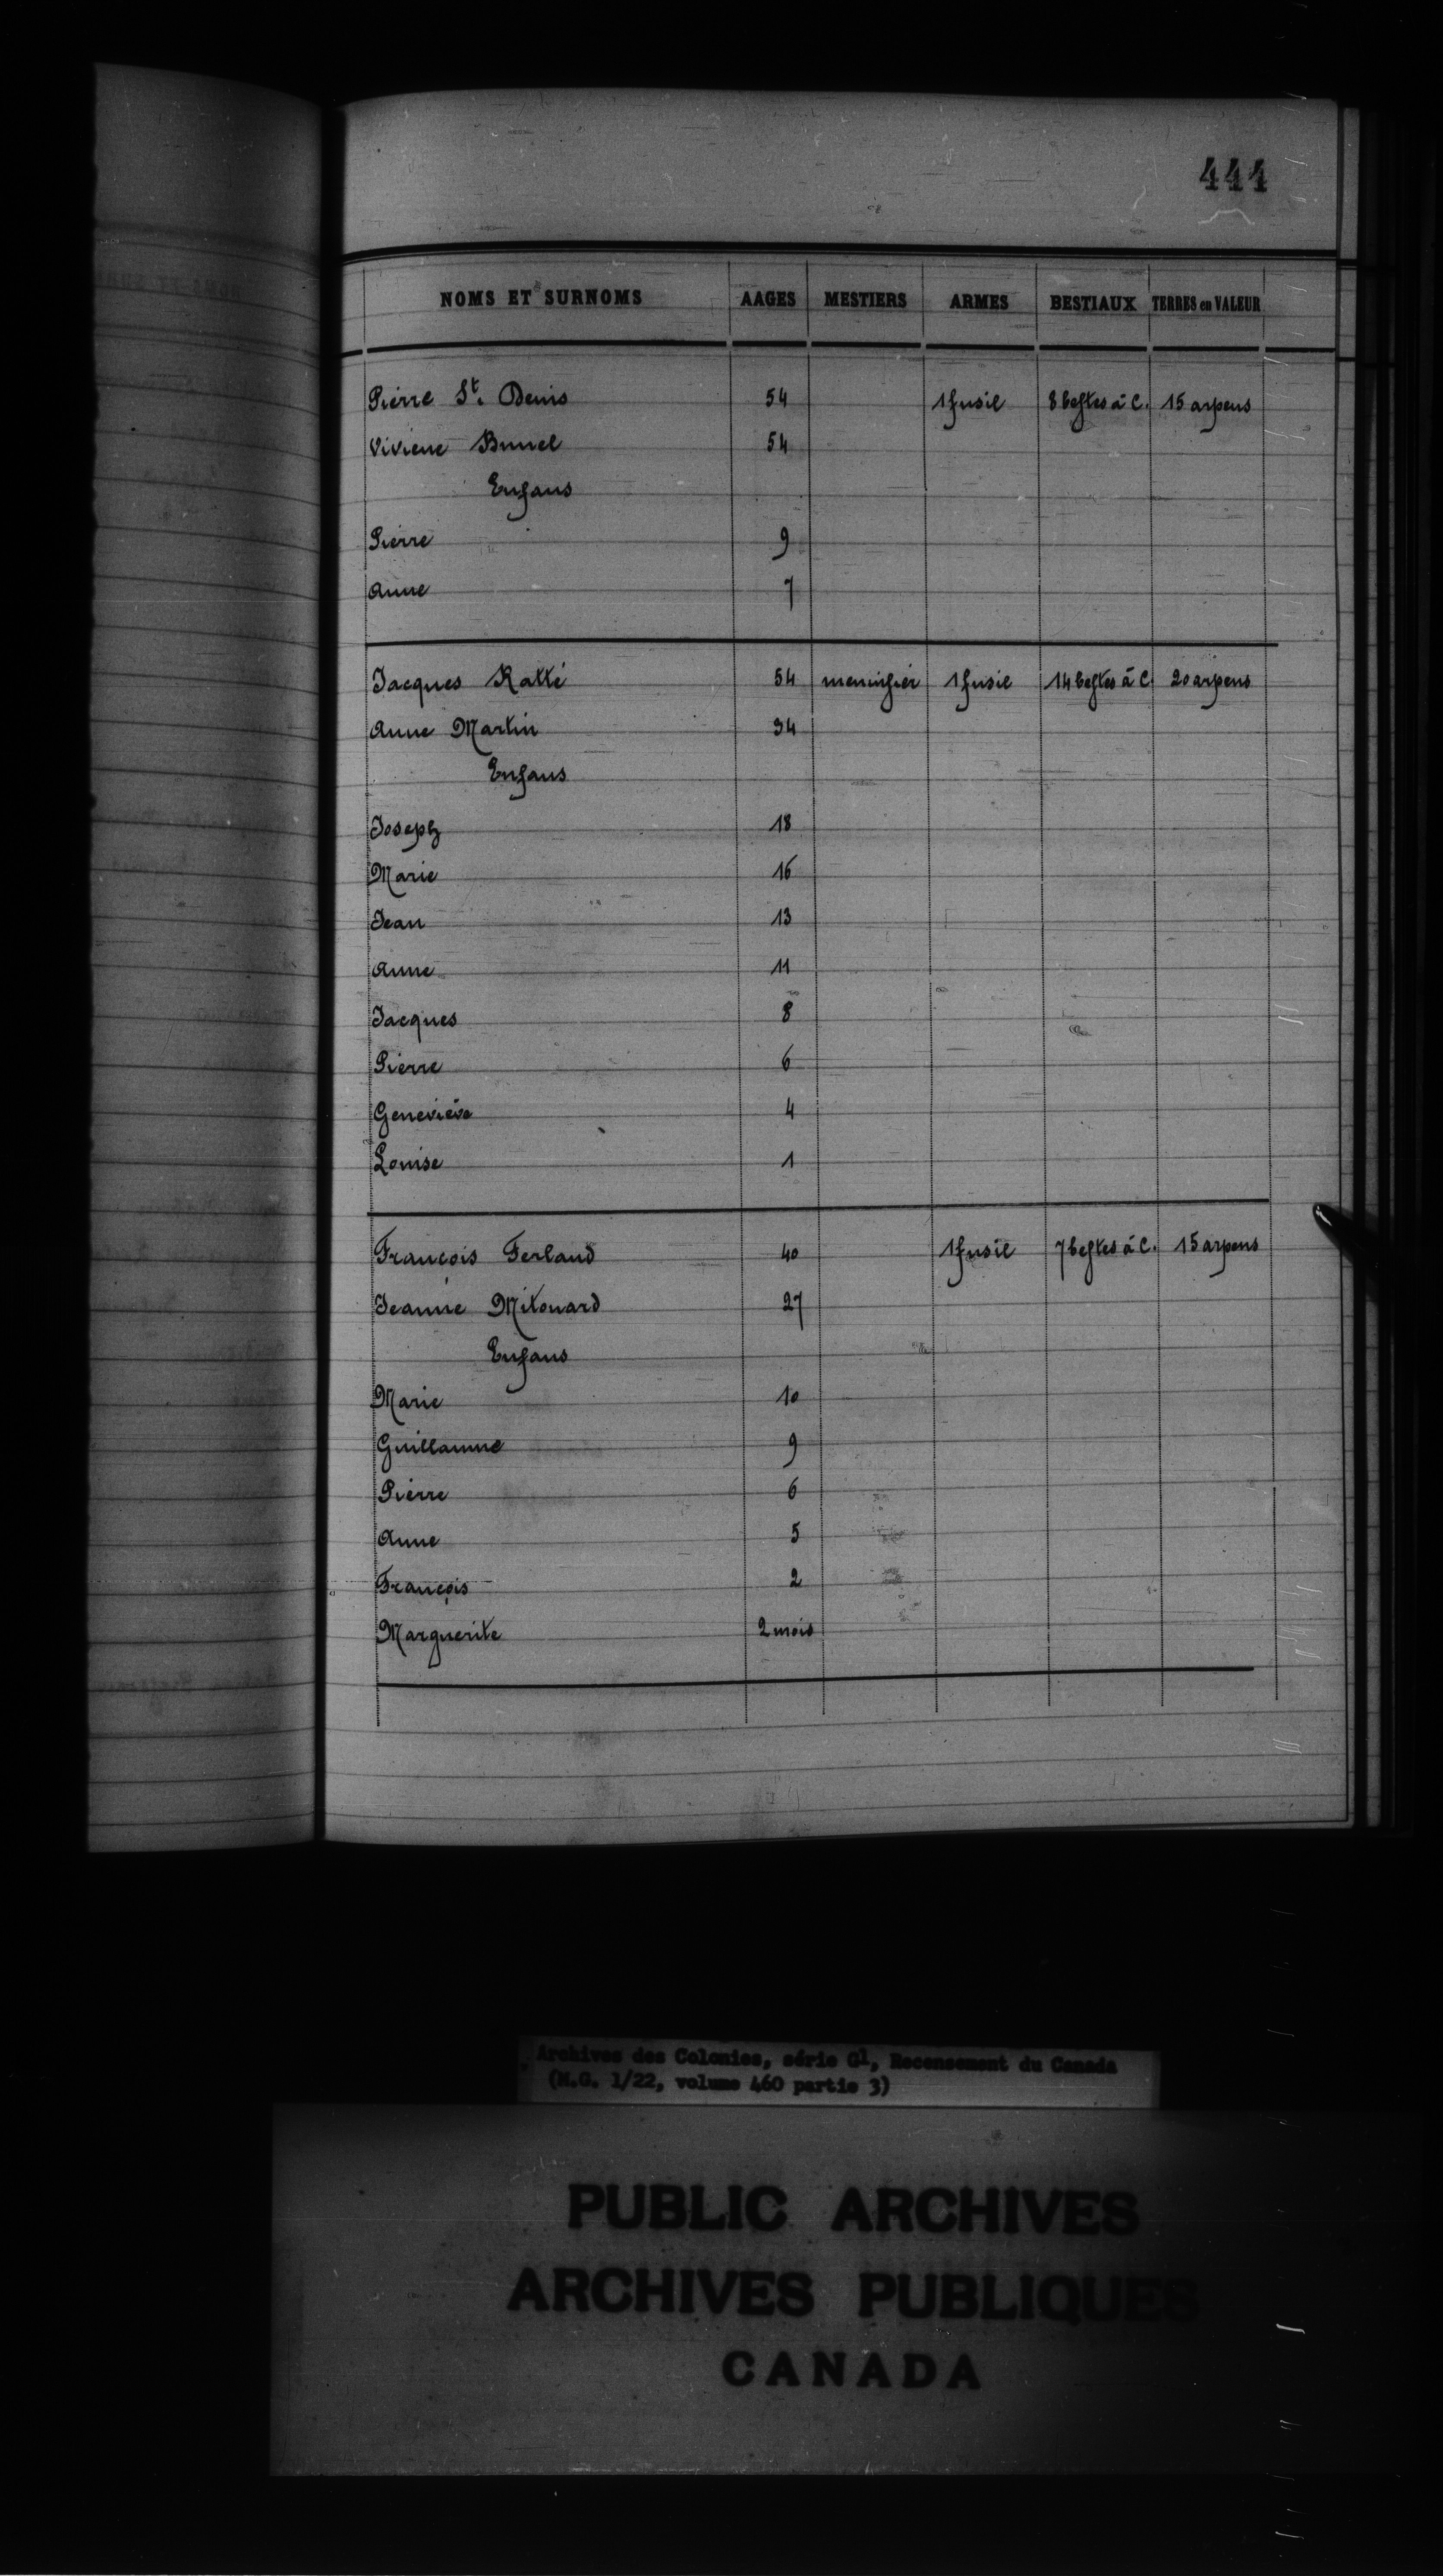 444
NOMS ET SURNOMS AAGES MESTIERS ARMES BESTIAUX TERRES en VALEUR
Pierre St. Denis 54 1 fusil 8 bestes à C. 15 arpens
Viviene Bunel 54
Enfans
Pierre 9
Anne 7
Jacques Ratté 54 menuisier 1 fusil 14 bestes à C. 20 arpens
Anne Martin 34
Enfans
Joseph 18
Marie 16
Jean 13
Anne 11
Jacques 8
Pierre 6
Geneviève 4
Louise 1
François Ferland 40 1 fusil 7 bestes à C. 15 arpens
Jeanne Mitouard 27
Enfans
Marie 10
Guillaume 9
Pierre 6
Anne 5
François 2
Marguerite 2 mois
Archives des Colonies, série G1, Recensement du Canada
(M.G. 1/22, volume 460 partie 3)
PUBLIC ARCHIVES
ARCHIVES PUBLIQUES
CANADA